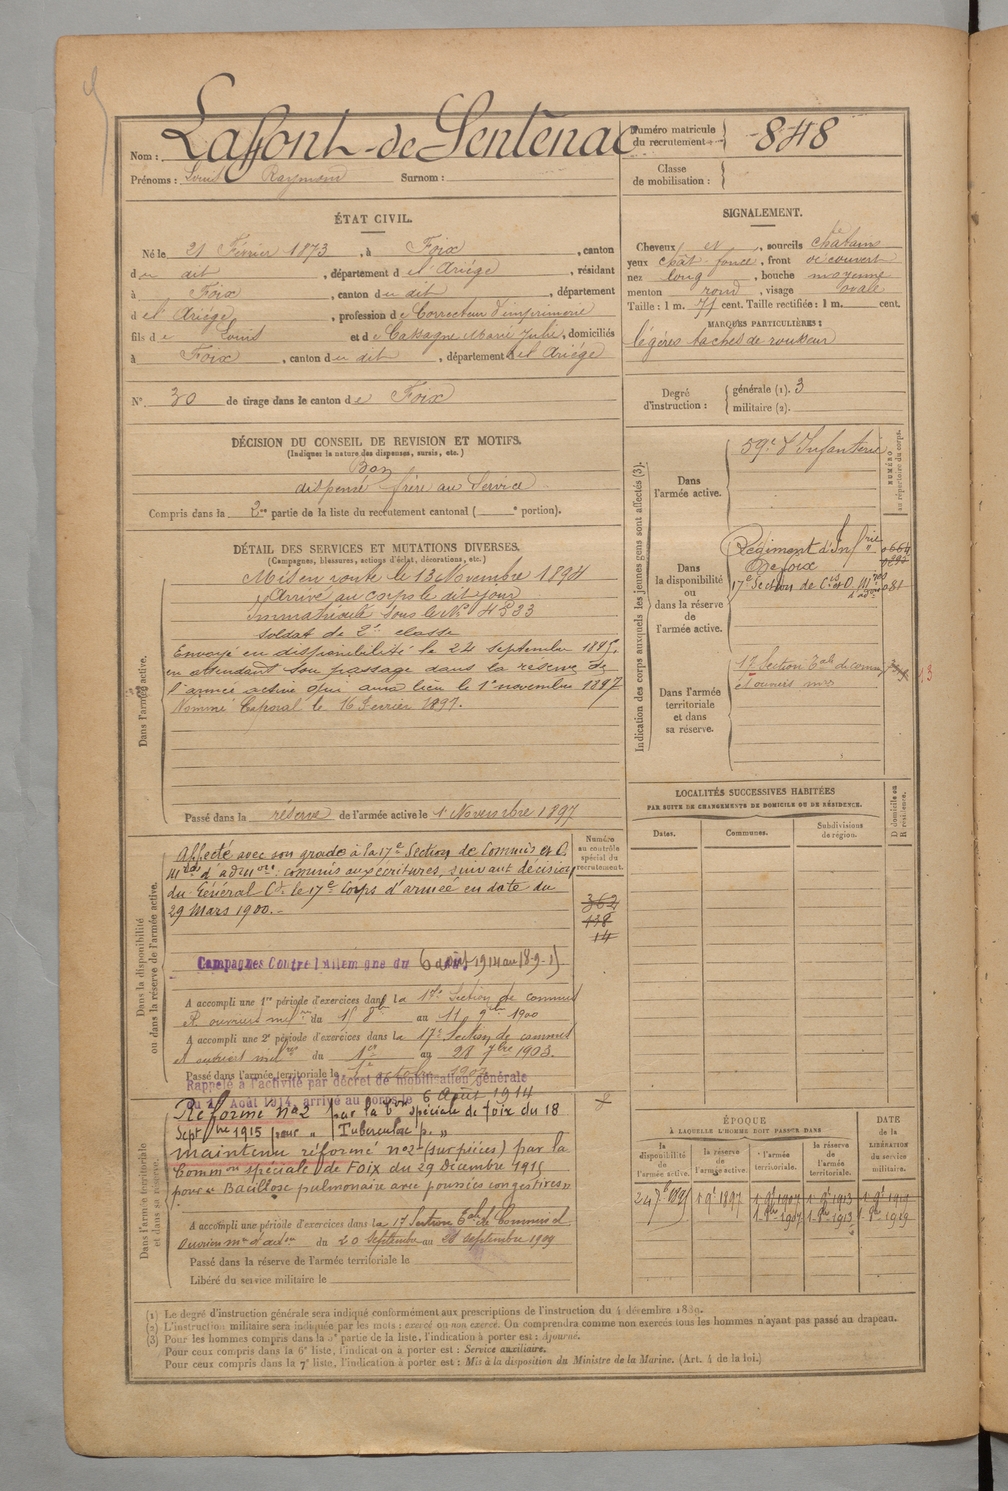 Nom : Laffont de Sentenac
Numéro matricule du recrutement : 848
Prénoms : Louis Raymond Surnom :
Classe de mobilisation :
ÉTAT CIVIL.
Né le 21 Février 1873, à Foix, canton
du dit, département de l'Ariége, résidant
à Foix, canton du dit, département
de l'Ariége, profession de Correcteur d'imprimerie
fils de Louis et de Cassagne Marie Julie, domiciliés
à Foix, canton du dit, département de l'Ariége
N° 30 de tirage dans le canton de Foix
DÉCISION DU CONSEIL DE REVISION ET MOTIFS.
(Indiquer la nature des dispenses, sursis, etc.)
Bon
dispensé frère au Service
Compris dans la 2e partie de la liste du recrutement cantonal ( e portion).
SIGNALEMENT.
Cheveux et, sourcils châtains
yeux chât. foncé, front découvert
nez long, bouche moyenne
menton rond, visage ovale
Taille : 1 m. 71 cent. Taille rectifiée : 1 m. cent.
MARQUES PARTICULIÈRES :
légères taches de rousseur
Degré d'instruction : générale (1). 3
militaire (2).
Indication des corps auxquels les jeunes gens sont affectés (3).
NUMÉRO au répertoire du corps.
Dans l'armée active.
59e d'Infanterie
Dans la disponibilité ou dans la réserve de l'armée active.
Régiment d'Infrie
de Foix
17e Section de Cis et O.
Dans l'armée territoriale et dans sa réserve.
17 Section Tale de commis
et ouvriers
DÉTAIL DES SERVICES ET MUTATIONS DIVERSES.
(Campagnes, blessures, actions d'éclat, décorations, etc.)
Dans l'armée active.
Mis en route le 13 Novembre 1894
Arrivé au corps le dit jour
Immatriculé sous le N° 4533
soldat de 2e classe
Envoyé en disponibilité le 24 septembre 1895.
en attendant son passage dans la réserve de
l'armée active qui aura lieu le 1er novembre 1897
Nommé Caporal le 16 Février 1897.
Passé dans la réserve de l'armée active le 1er Novembre 1897
Dans la disponibilité ou dans la réserve de l'armée active.
Numéro au contrôle spécial du recrutement.
Affecté avec son grade à la 17e Section de Commis et O.
d'admon : commis aux écritures, suivant décision
du Général Ct le 17e Corps d'armée en date du
29 Mars 1900.
362
138
14
Campagnes Contre l'Allemagne du 6 août 1914 au 18-9-15
A accompli une 1re période d'exercices dans la 17e Section de commis
et ouvriers du 15 8bre au 11 9bre 1900
A accompli une 2e période d'exercices dans la 17e Section de commis
et ouvriers du 1er au 28 7bre 1903.
Passé dans l'armée territoriale le 1er octobre 1907
Rappelé à l'activité par décret de mobilisation générale
du 1er Août 1914, arrivé au corps le 6 Août 1914
Dans l'armée territoriale et dans sa réserve.
Réformé n°2 par la Con spéciale de Foix du 18
Septbre 1915 pour "Tuberculose p."
maintenu réformé n°2 (sur pièces) par la
Common spéciale de Foix du 29 Décembre 1915
pour "Bacillose pulmonaire avec poussées congestives"
A accompli une période d'exercices dans la 17 Section Tale de Commis et
Ouvriers mres d'adon du 20 septembre au 28 septembre 1909
Passé dans la réserve de l'armée territoriale le
Libéré du service militaire le
LOCALITÉS SUCCESSIVES HABITÉES
PAR SUITE DE CHANGEMENTS DE DOMICILE OU DE RÉSIDENCE.
Dates. Communes. Subdivisions de région. D domicile ou R résidence.
ÉPOQUE À LAQUELLE L'HOMME DOIT PASSER DANS
DATE de la LIBÉRATION du service militaire.
la disponibilité de l'armée active. la réserve de l'armée active. l'armée territoriale. la réserve de l'armée territoriale.
24 7bre 1895 1 9bre 1897 1 9bre 1907 1 9bre 1913 1 9bre 1919
1 8bre 1907 1 8bre 1913 1 8bre 1919
(1) Le degré d'instruction générale sera indiqué conformément aux prescriptions de l'instruction du 4 décembre 1889.
(2) L'instruction militaire sera indiquée par les mots : exercé ou non exercé. On comprendra comme non exercés tous les hommes n'ayant pas passé au drapeau.
(3) Pour les hommes compris dans la 5e partie de la liste, l'indication à porter est : Ajourné.
Pour ceux compris dans la 6e liste, l'indication à porter est : Service auxiliaire.
Pour ceux compris dans la 7e liste, l'indication à porter est : Mis à la disposition du Ministre de la Marine. (Art. 4 de la loi.)